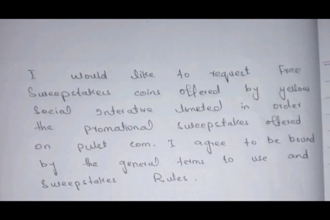 I would like to request Free
Sweepstakes coins offered by yellow
Social Interative limeted in order
the promotional sweepstakes offered
on pulet com. I agree to be bound
by the general terms to use and
Sweepstakes Rules.